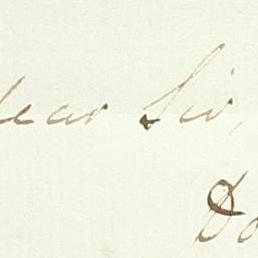 ear Sir,
Do